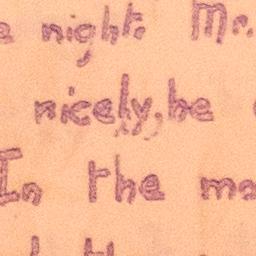 night. Mr.
nicely, he
In the